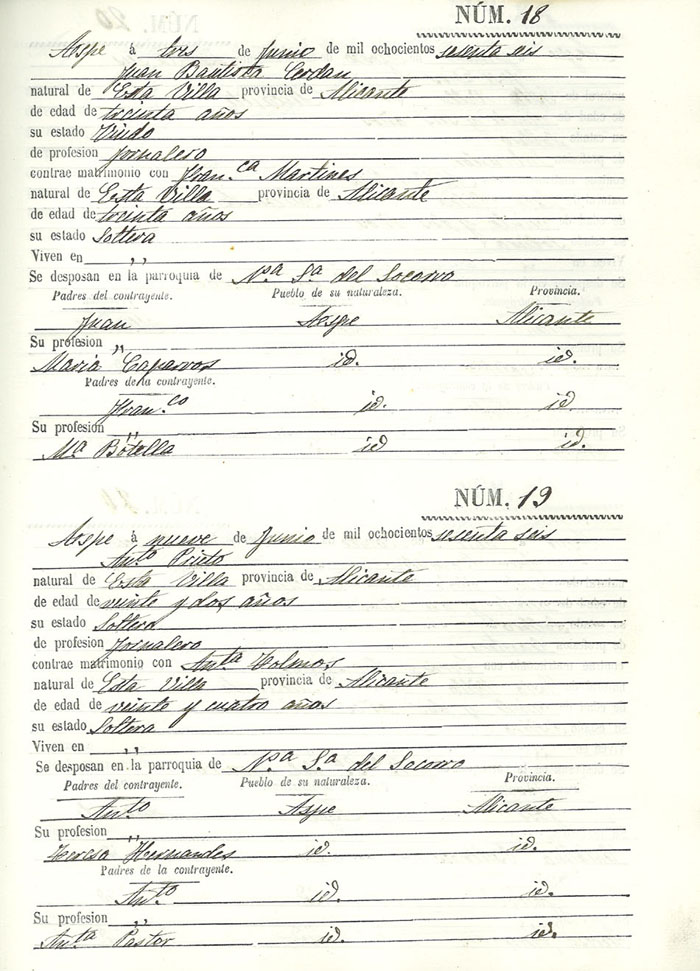 NÚM. 18
Aspe á tres de Junio de mil ochocientos sesenta seis
Juan Bautista Cerdan
natural de Esta Villa provincia de Alicante
de edad de treinta años
su estado Viudo
de profesion Jornalero
contrae matrimonio con Fran.ca Martines
natural de Esta Villa provincia de Alicante
de edad de treinta años
su estado Soltera
Viven en ,,
Se desposan en la parroquia de N.a S.a del Socorro
Padres del contrayente. Pueblo de su naturaleza. Provincia.
Juan Aspe Alicante
Su profesion ,,
Maria Caparros id. id.
Padres de la contrayente.
Fran.co id. id
Su profesion ,,
M.a Botella id id.
NÚM. 19
Aspe á nueve de Junio de mil ochocientos sesenta seis
Ant.o Prieto
natural de Esta Villa provincia de Alicante
de edad de veinte y dos años
su estado Soltero
de profesion Jornalero
contrae matrimonio con Ant.a
natural de Esta Villa provincia de Alicante
de edad de veinte y cuatro años
su estado Soltera
Viven en ,,
Se desposan en la parroquia de N.a S.a del Socorro
Padres del contrayente. Pueblo de su naturaleza. Provincia.
Ant.o Aspe Alicante
Su profesion ,,
Teresa Hernandes id. id.
Padres de la contrayente.
Ant.o id. id.
Su profesion ,,
Ant.a Pastor id. id.